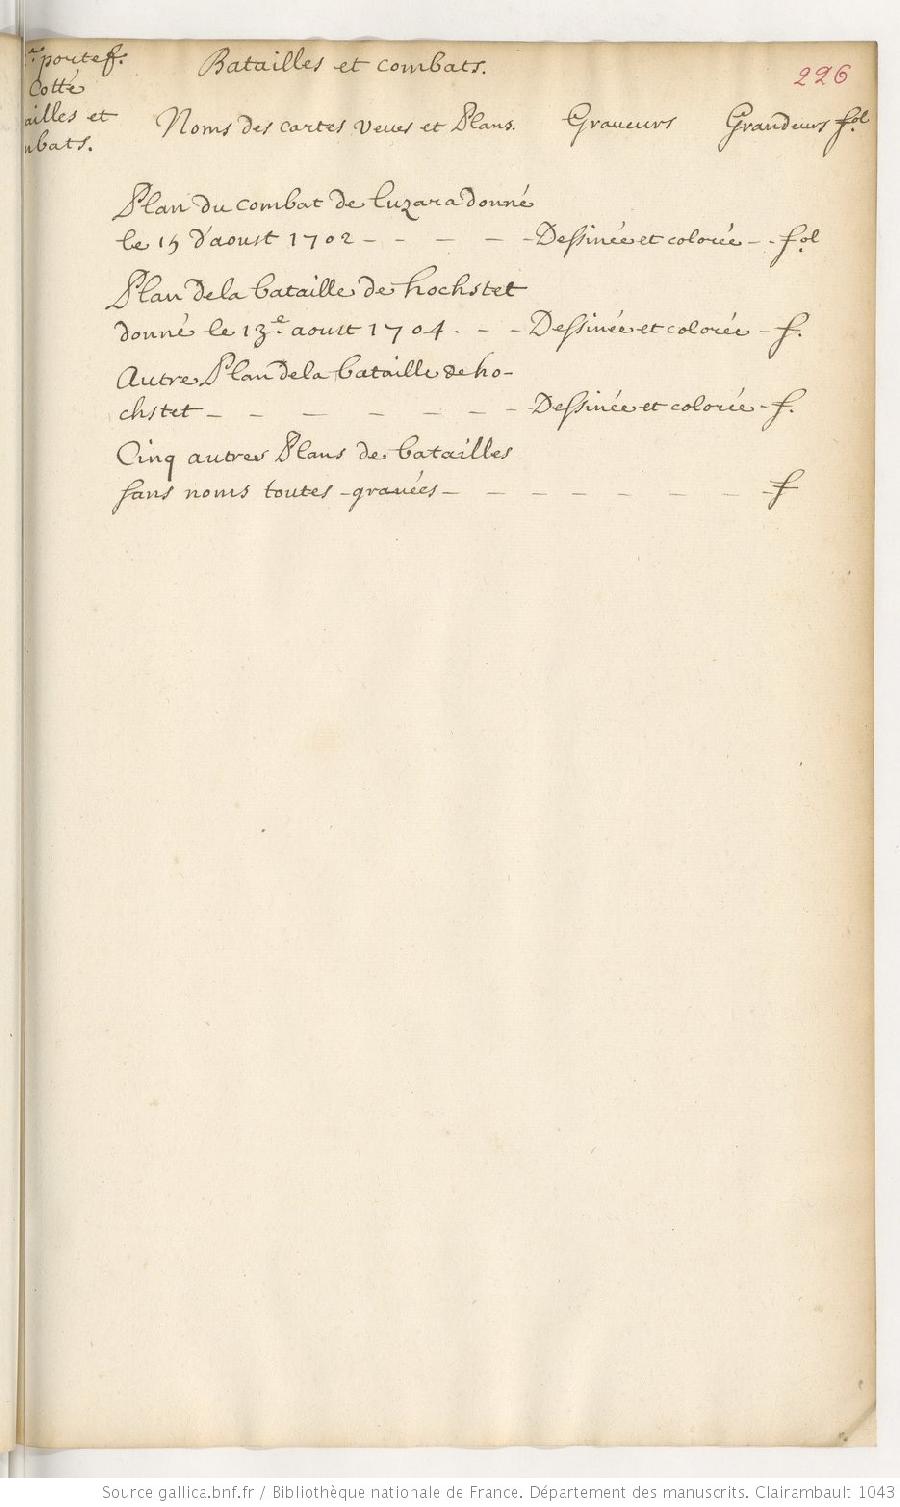 portef. Batailles et combats. 226
Cotté
ailles et Noms des cartes veues et Plans. Graveurs Grandeurs fol
mbats.
Plan du combat de luzara donné
le 15 d'aoust 1702 - - - - - Dessinée et colorée - - fol
Plan de la bataille de hochstet
donné le 13e aoust 1704. - - Dessinée et colorée - f.
Autre Plan de la bataille de ho-
chstet - - - - - - - - Dessinée et colorée - f.
Cinq autres Plans de batailles
sans noms toutes - gravées - - - - - - - - - f
Source gallica.bnf.fr / Bibliothèque nationale de France. Département des manuscrits. Clairambault 1043